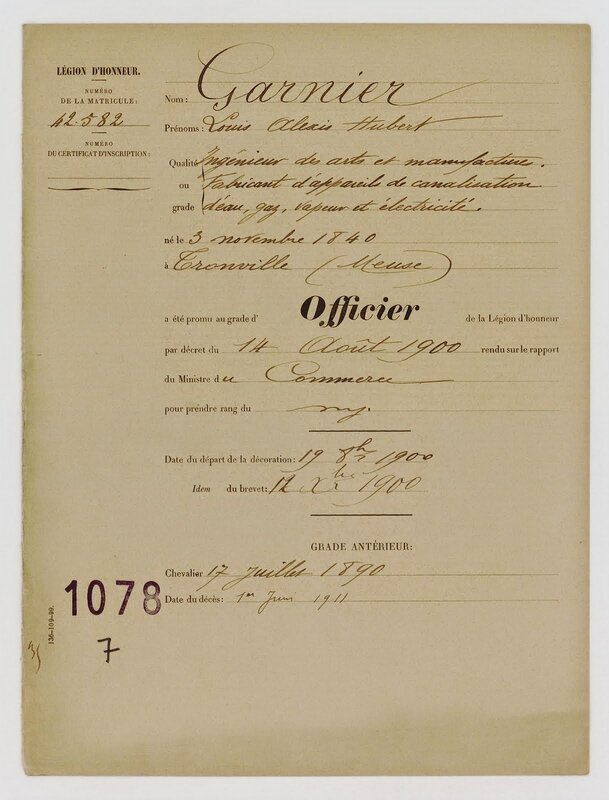 LÉGION D'HONNEUR.
NUMÉRO
DE LA MATRICULE:
42.582
NUMÉRO
DU CERTIFICAT D'INSCRIPTION:
Nom: Garnier
Prénoms: Louis Alexis Hubert
Qualité Ingénieur des arts et manufactures.
ou Fabricant d'appareils de canalisation
grade d'eau, gaz, vapeur et électricité.
né le 3 novembre 1840
à Tronville (Meuse)
a été promu au grade d' Officier de la Légion d'honneur
par décret du 14 Août 1900 rendu sur le rapport
du Ministre du Commerce
pour prendre rang du
Date du départ de la décoration: 19 8bre 1900
Idem du brevet: 12 Xbre 1900
GRADE ANTÉRIEUR:
Chevalier 17 Juillet 1890
Date du décès: 1er Juin 1911
1078
7
136-109-99.